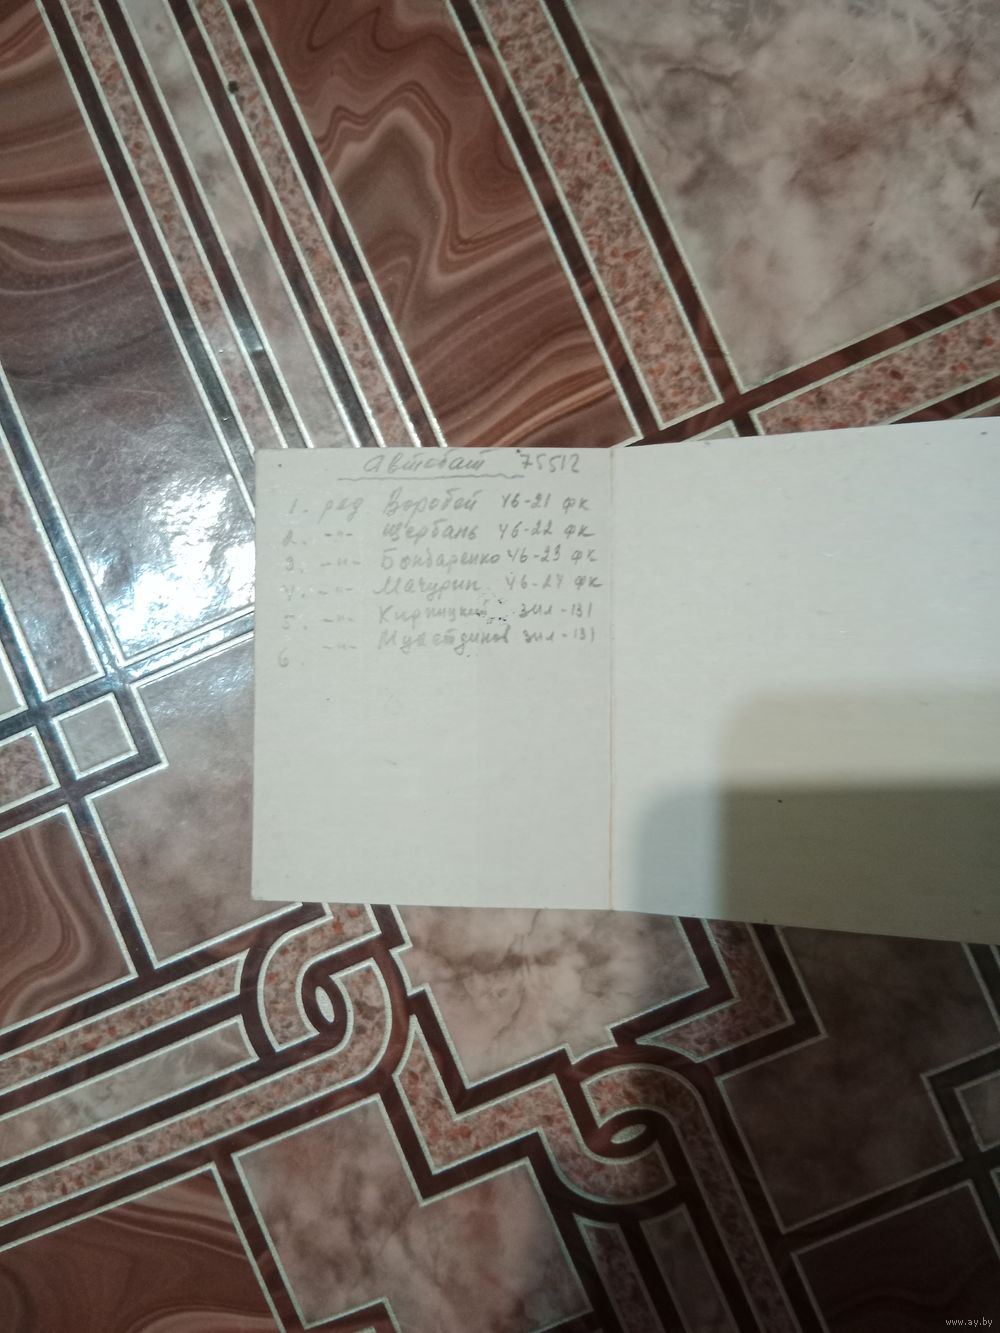 Автобат 75512
1. ряд Воробей 46-21 ФК
2. -"- Щербань 46-22 ФК
3. -"- Бондаренко 46-23 ФК
4. -"- Мачурин 46-24 ФК
5. -"- зил-131
6. -"- зил-131
www.ay.by